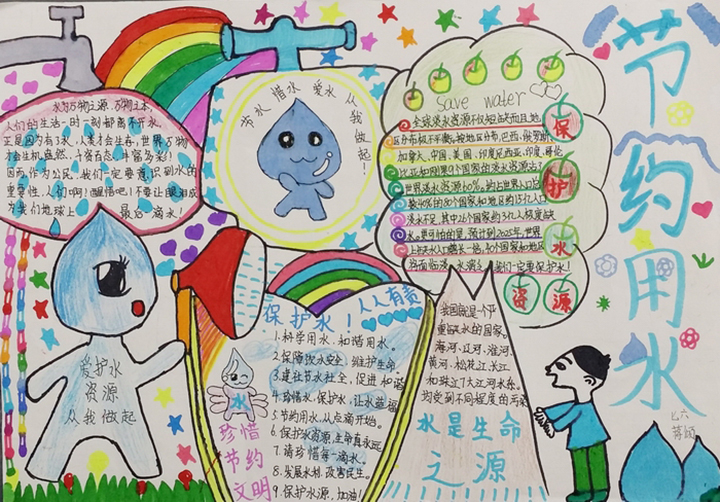 节约用水
水为万物之源,万物之本,
人们的生活一时一刻都离不开水,
正是因为有了水,人类才会生存,世界万物
才会生机盎然、千姿百态、丰富多彩!
因而,作为公民,我们一定要意识到水的
重要性,人们啊!醒悟吧!不要让眼泪成
为我们地球上
最后一滴水!
节水 惜水 爱水 从我做起!
Save water
全球淡水资源不仅短缺而且地
区分布极不平衡,按地区分布,巴西、俄罗斯
加拿大、中国、美国、印度尼西亚、印度、哥伦
比亚和刚果9个国家的淡水资源占了
世界淡水资源60%。约占世界人口总
数40%的80个国家和地区约15亿人口
淡水不足,其中26个国家约3亿人极度缺
水。更可怕的是,预计到2025年,世界
上缺水人口增长
40个国家和地区
淡水
我们一定要保护水!
保护水资源
爱护水
资源
从我做起
保护水!人人有责
1.科学用水,和谐用水。
2.保障饮水安全,维护生命
3.建设节水社会,促进和谐
4.珍惜水,保护水,让水造福
5.节约用水,从点滴开始。
6.保护水资源,生命真永远
7.请珍惜每一滴水。
8.发展水利,改善民生。
9.保护水源,加油!
水
珍惜
节约
文明
我国就是一个严
重缺水的国家。
海河、辽河、淮河、
黄河、松花江、长江
和珠江7大江河水系,
均受到不同程度的污染
水是生命
之源
七六